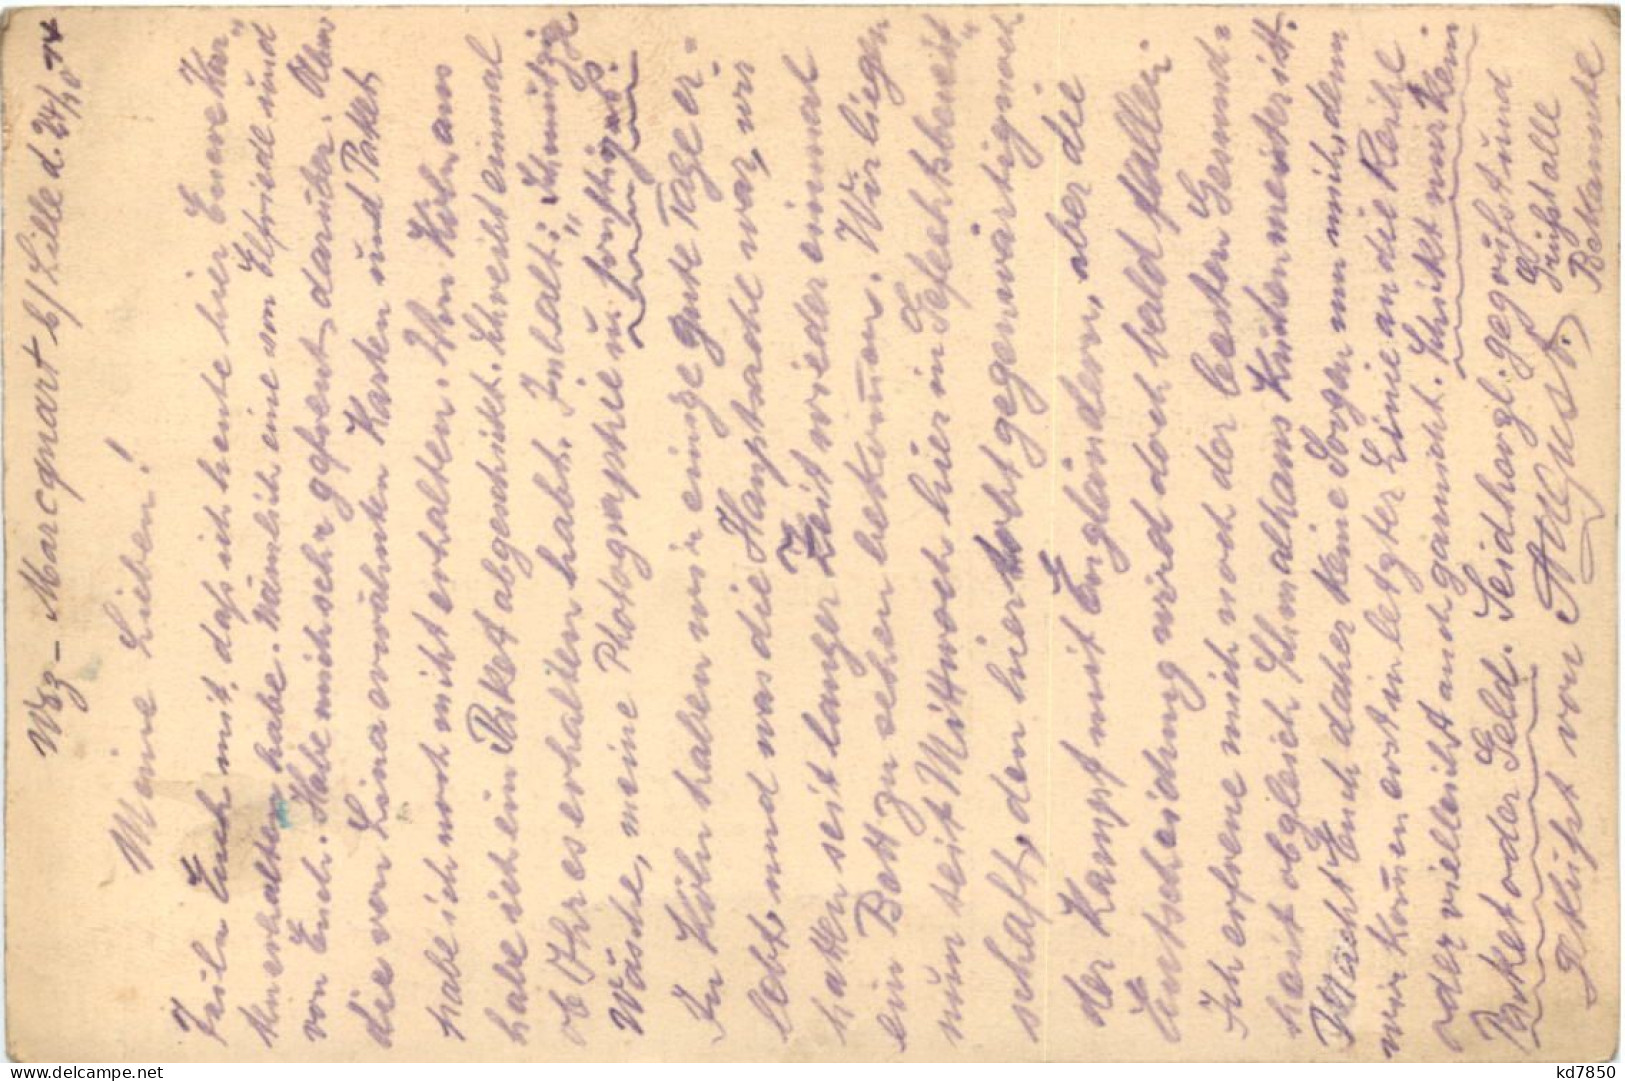 Wez-Marcquart b/ Lille d. 24/10 14
Meine Lieben!
Teile Euch mit, daß ich heute hier Euere Kar-
ten erhalten habe. Nämlich eine von Elfriede und
von Euch. Habe mich sehr gefreut darüber. Aber
die von Lina erwähnten Karten und Paket
habe ich noch nicht erhalten. Von Köln aus
habe ich ein Paket abgeschickt. Schreibt einmal
ob Ihr es erhalten habt. Inhalt: "Schmutzige
Wäsche, meine Photographie u. sonstiges.
In Köln haben wir einige gute Tage er-
lebt, und was die Hauptsache war, wir
hatten seit langer Zeit wieder einmal
ein Bett zu sehen bekommen. Wir liegen
nun seit Mittwoch hier in "Gefechtsbereit"
schaft, den hier tobt gegenwärtig noch
der Kampf mit Engländern, aber die
Entscheidung wird doch bald fallen.
Ich erfreue mich noch der besten Gesund-
heit obgleich Schmalhans Küchenmeister ist.
Macht Euch daher keine Sorgen um mich, denn
wir kommen erst in letzter Linie an die Reihe
oder vielleicht auch garnicht. Schickt mir kein
Paket oder Geld. Seid herzl. gegrüßt und
geküßt von August.
Grüßt alle
Bekannte
kd7850